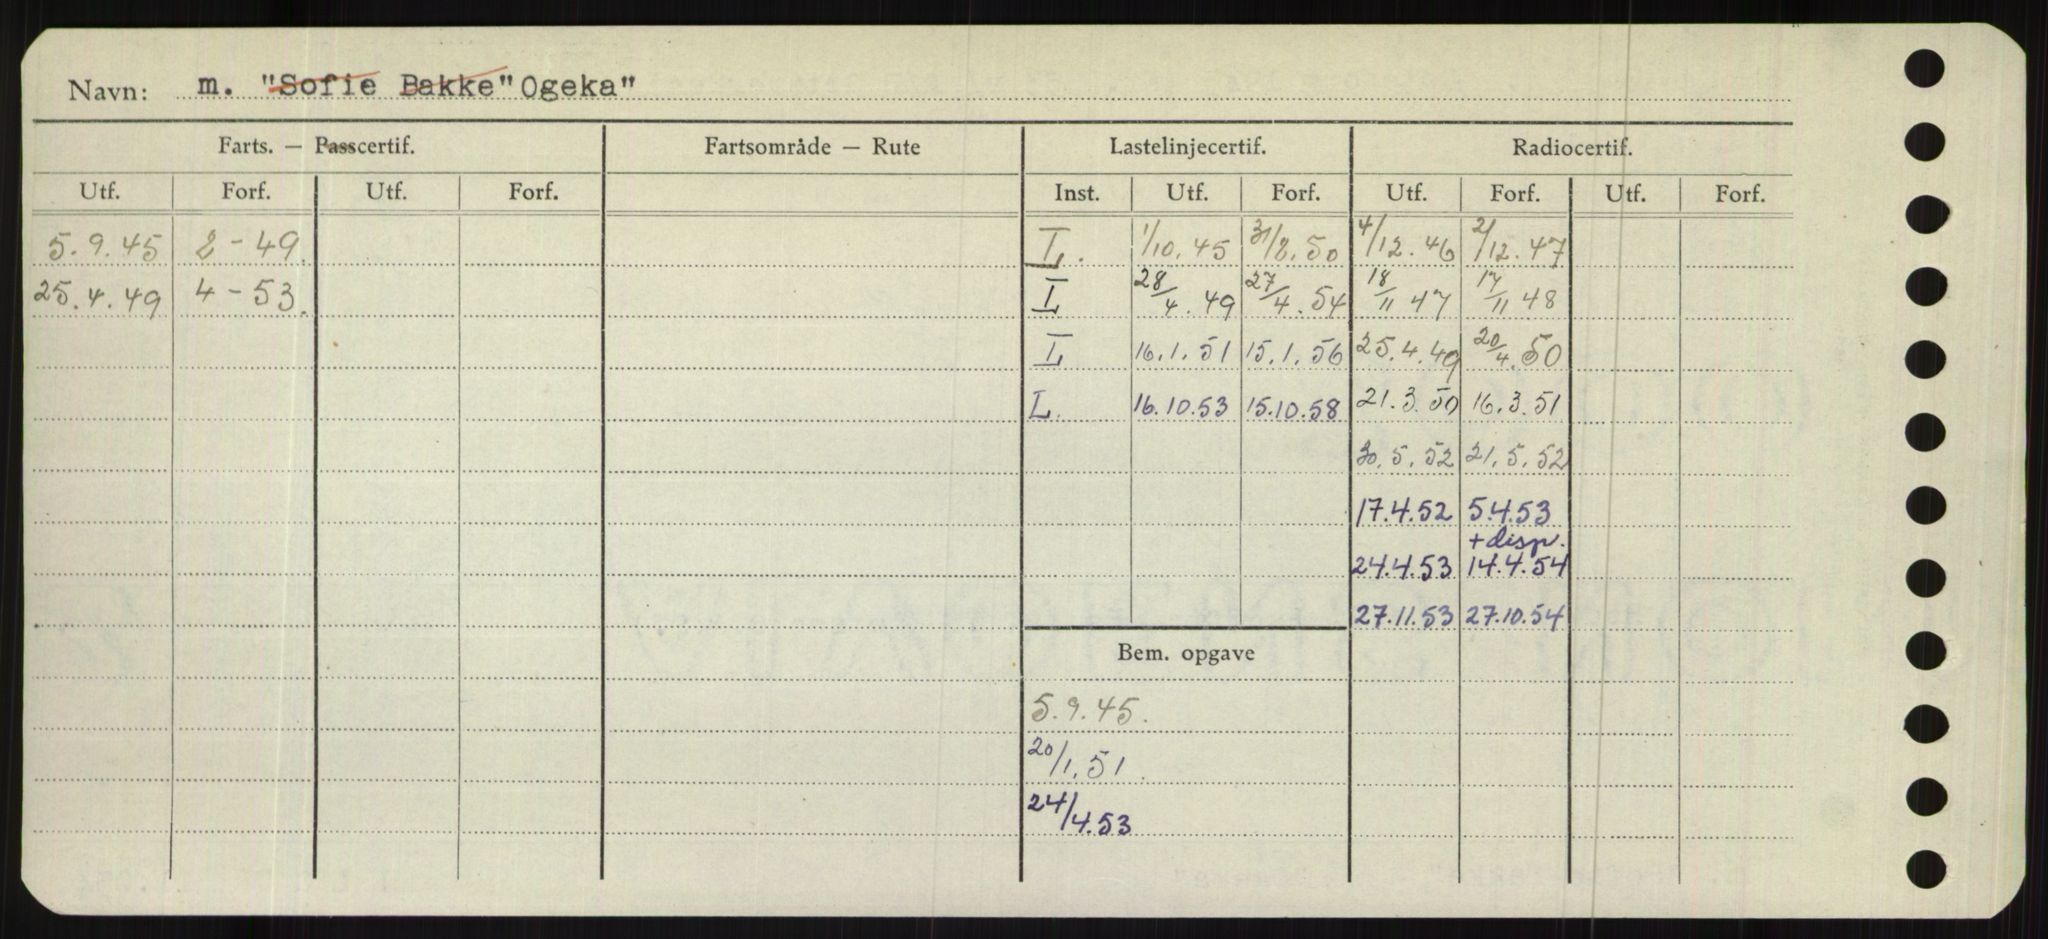 Navn: m. "Sofie Bakke" Ogeka"
Farts. — Passcertif. Fartsområde — Rute Lastelinjecertif. Radiocertif.
Utf. Forf. Utf. Forf. Inst. Utf. Forf. Utf. Forf. Utf. Forf.
5.9.45 2-49. L. 1/10.45 31/8.50 4/12.46 2/12.47
25.4.49 4-53. L 28/4.49 27/4.54 18/11 47 17/11 48
L 16.1.51 15.1.56 25.4.49 20/4.50
L. 16.10.53 15.10.58 21.3.50 16.3.51
30.5.52 21.5.52
17.4.52 5.4.53
+ disp.
24.4.53 14.4.54
27.11.53 27.10.54
Bem. opgave
5.9.45.
20/1.51.
24/4.53